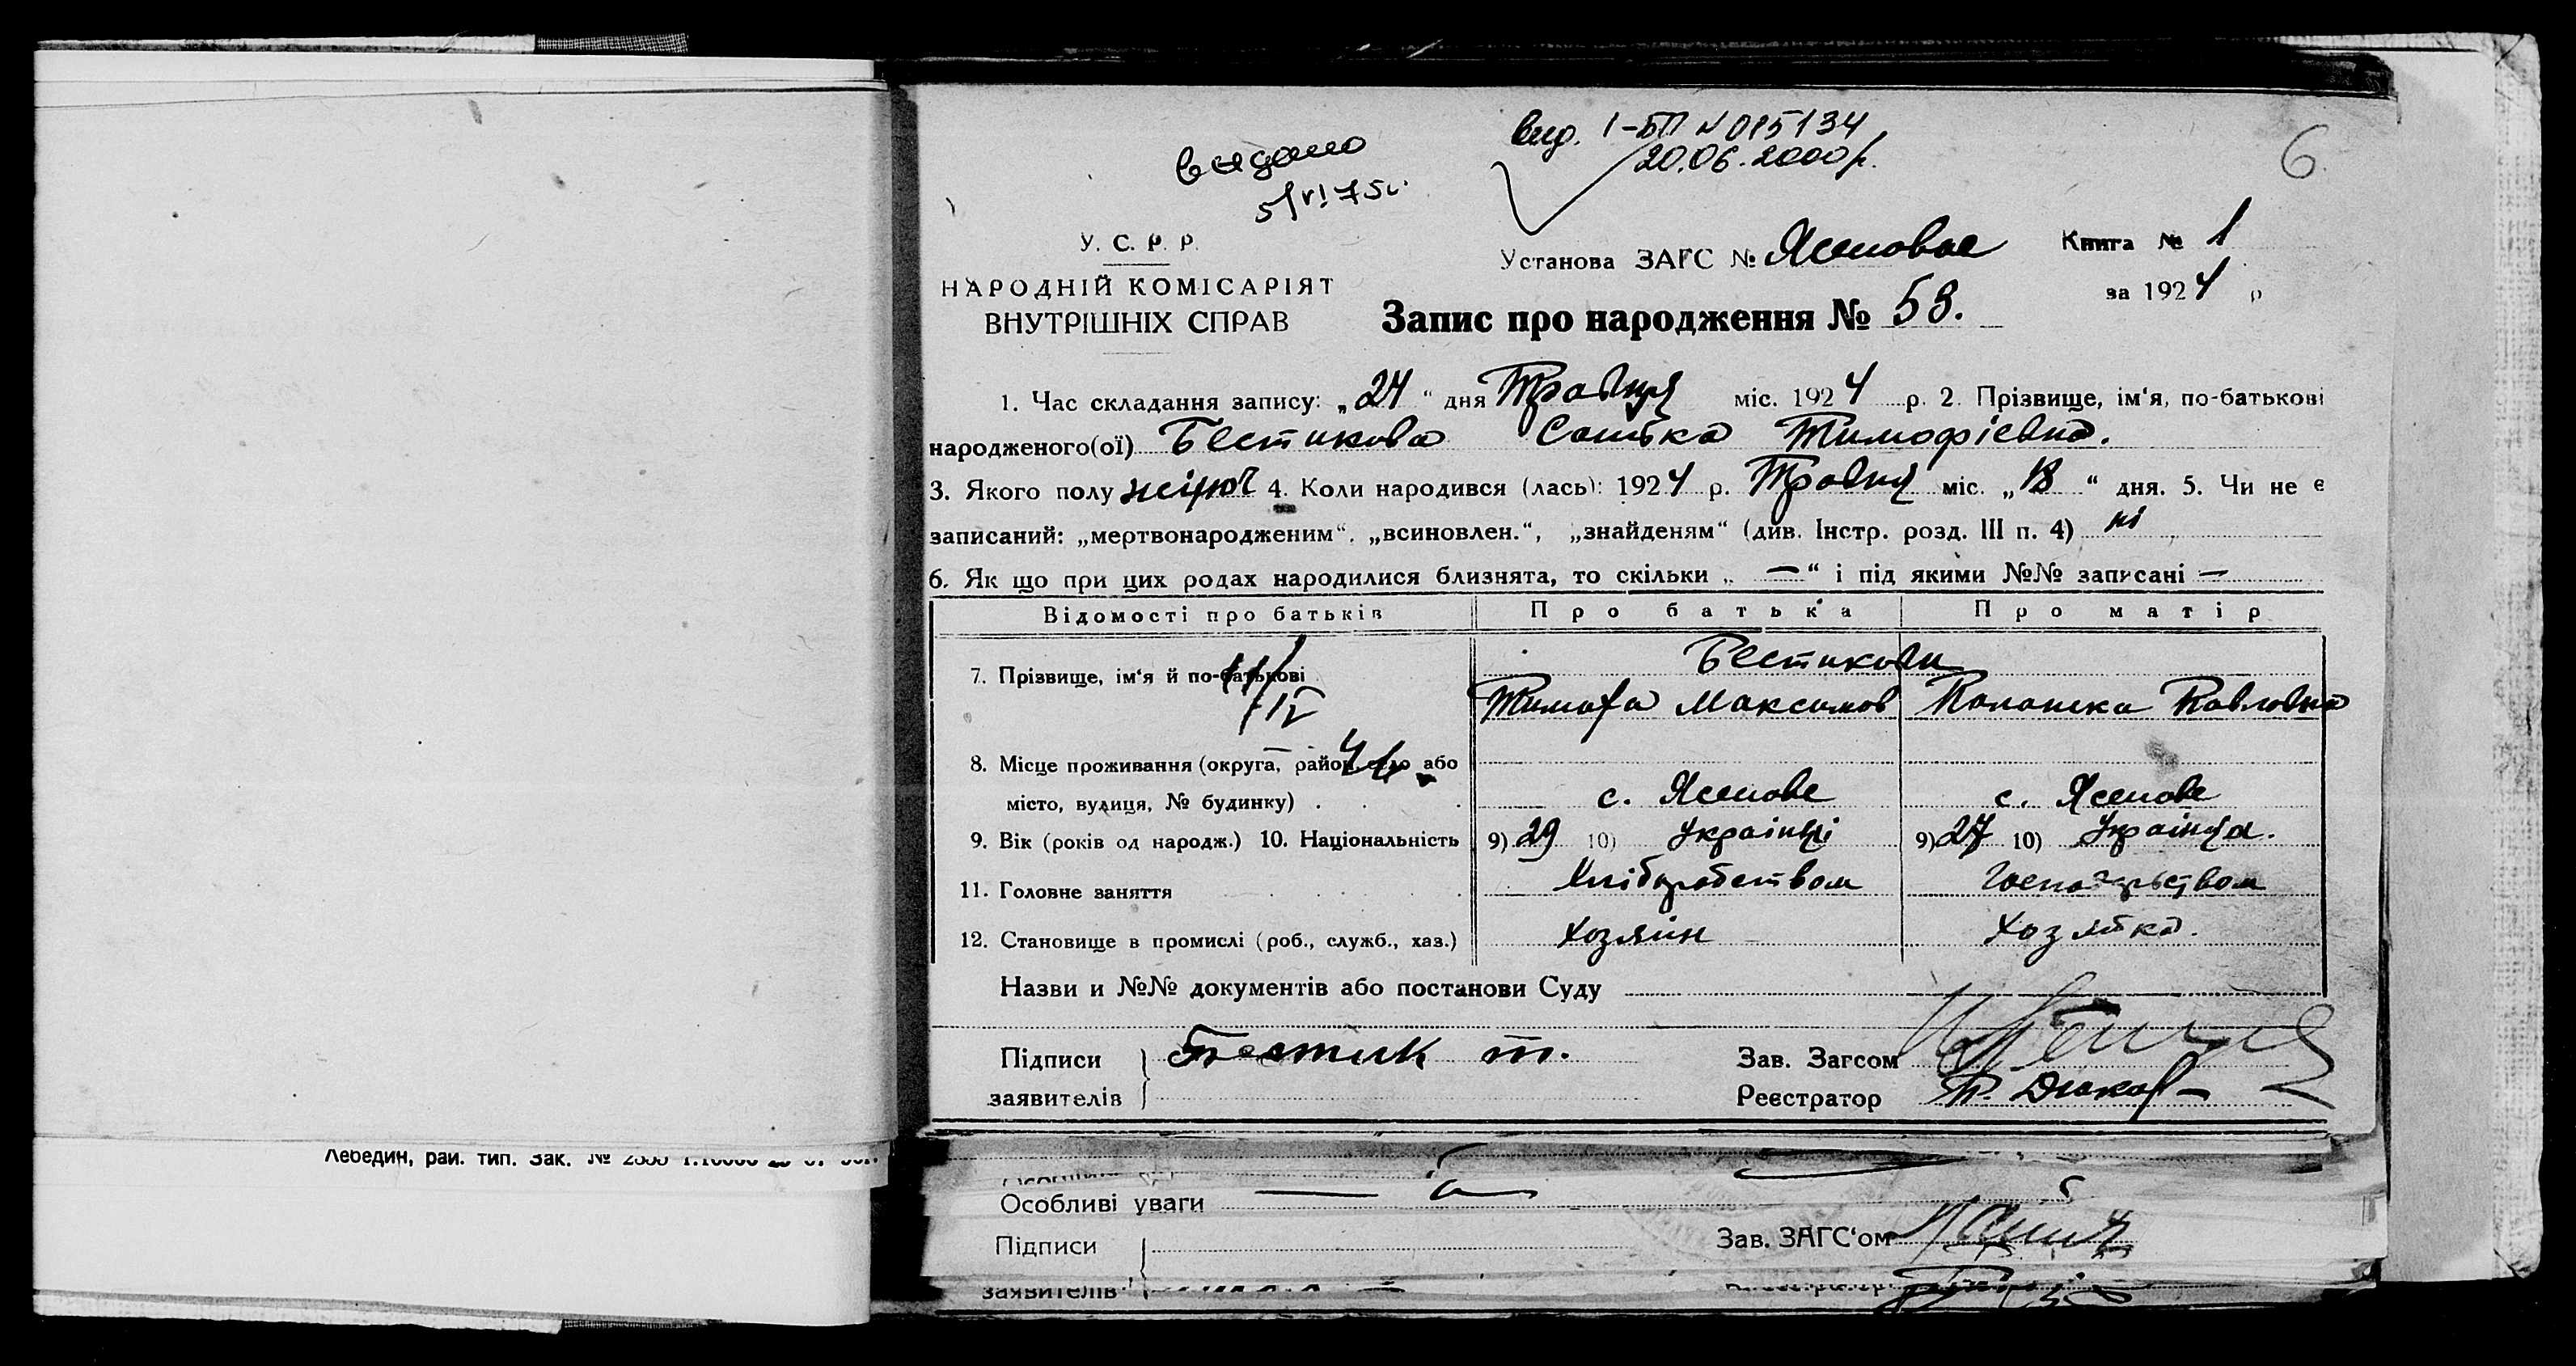 видано
5/VI 75г.
Вид. I-БП №015134
20.06.2000р.
6.
У. С. Р. Р.
НАРОДНІЙ КОМІСАРІЯТ
ВНУТРІШНІХ СПРАВ
Установа ЗАГС № Ясеновое
Книга № 1
за 1924 р
Запис про народження № 58.
1. Час складання запису: „24“ дня Травня міс. 1924 р. 2. Прізвище, ім‘я, по-батькові
народженого(ої) Бестикова Сашка Тимофієвна.
3. Якого полу жіноч 4. Коли народився (лась): 1924 р. Травня міс. „18“ дня. 5. Чи не є
записаний: „мертвонародженим“, „всиновлен.“, „знайденям“ (див. Інстр. розд. III п. 4) ні
6. Як що при цих родах народилися близнята, то скільки „ — “ і під якими №№ записані —
Відомості про батьків Про батька Про матір
7. Прізвище, ім‘я й по-батькові Бестикови
Тимофа Максимов Палашка Павловна
8. Місце проживання (округа, район, село або
місто, вулиця, № будинку) с. Ясенове с. Ясенове
9. Вік (років од народж.) 10. Національність 9) 29 10) Українці 9) 27 10) Українця.
11. Головне заняття Хліборобством Господарьством
12. Становище в промислі (роб., служб., хаз.) Хозяин Хозяйка.
Назви и №№ документів або постанови Суду
Підписи Бестик Т. Зав. Загсом
заявителів Реєстратор
Лебедин, рай. тип. Зак. №
Особливі уваги
Підписи Зав. ЗАГС‘ом
заявителів